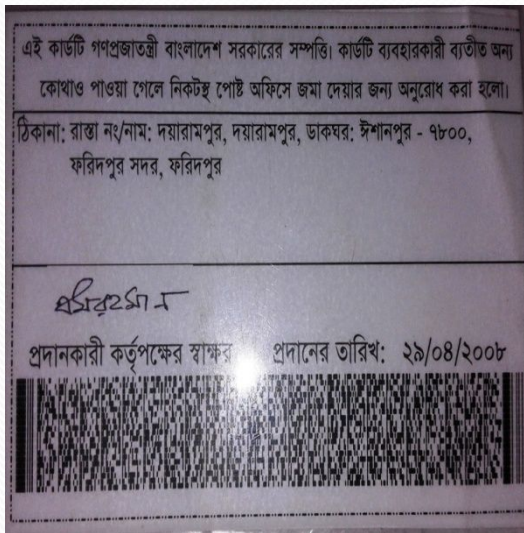 এই কার্ডটি গণপ্রজাতন্ত্রী বাংলাদেশ সরকারের সম্পত্তি। কার্ডটি ব্যবহারকারী ব্যতীত অন্য
কোথাও পাওয়া গেলে নিকটস্থ পোষ্ট অফিসে জমা দেয়ার জন্য অনুরোধ করা হলো।
ঠিকানা: রাস্তা নং/নাম: দয়ারামপুর, দয়ারামপুর, ডাকঘর: ঈশানপুর - ৭৮০০,
ফরিদপুর সদর, ফরিদপুর
প্রদানকারী কর্তৃপক্ষের স্বাক্ষর প্রদানের তারিখ: ২৯/০৪/২০০৮